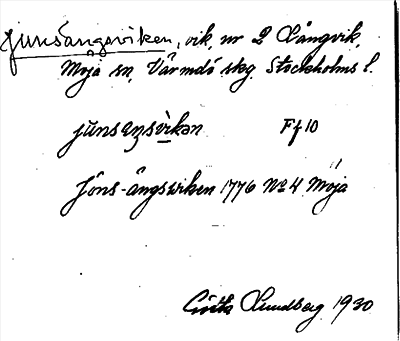 Junsängsviken, vik, nr 2 Långvik,
Möja sn, Värmdö skg Stockholms l.
junsæŋsvikən Ff 10
Jöns-ängswiken 1776 No 4 Möja
Lundberg 1930